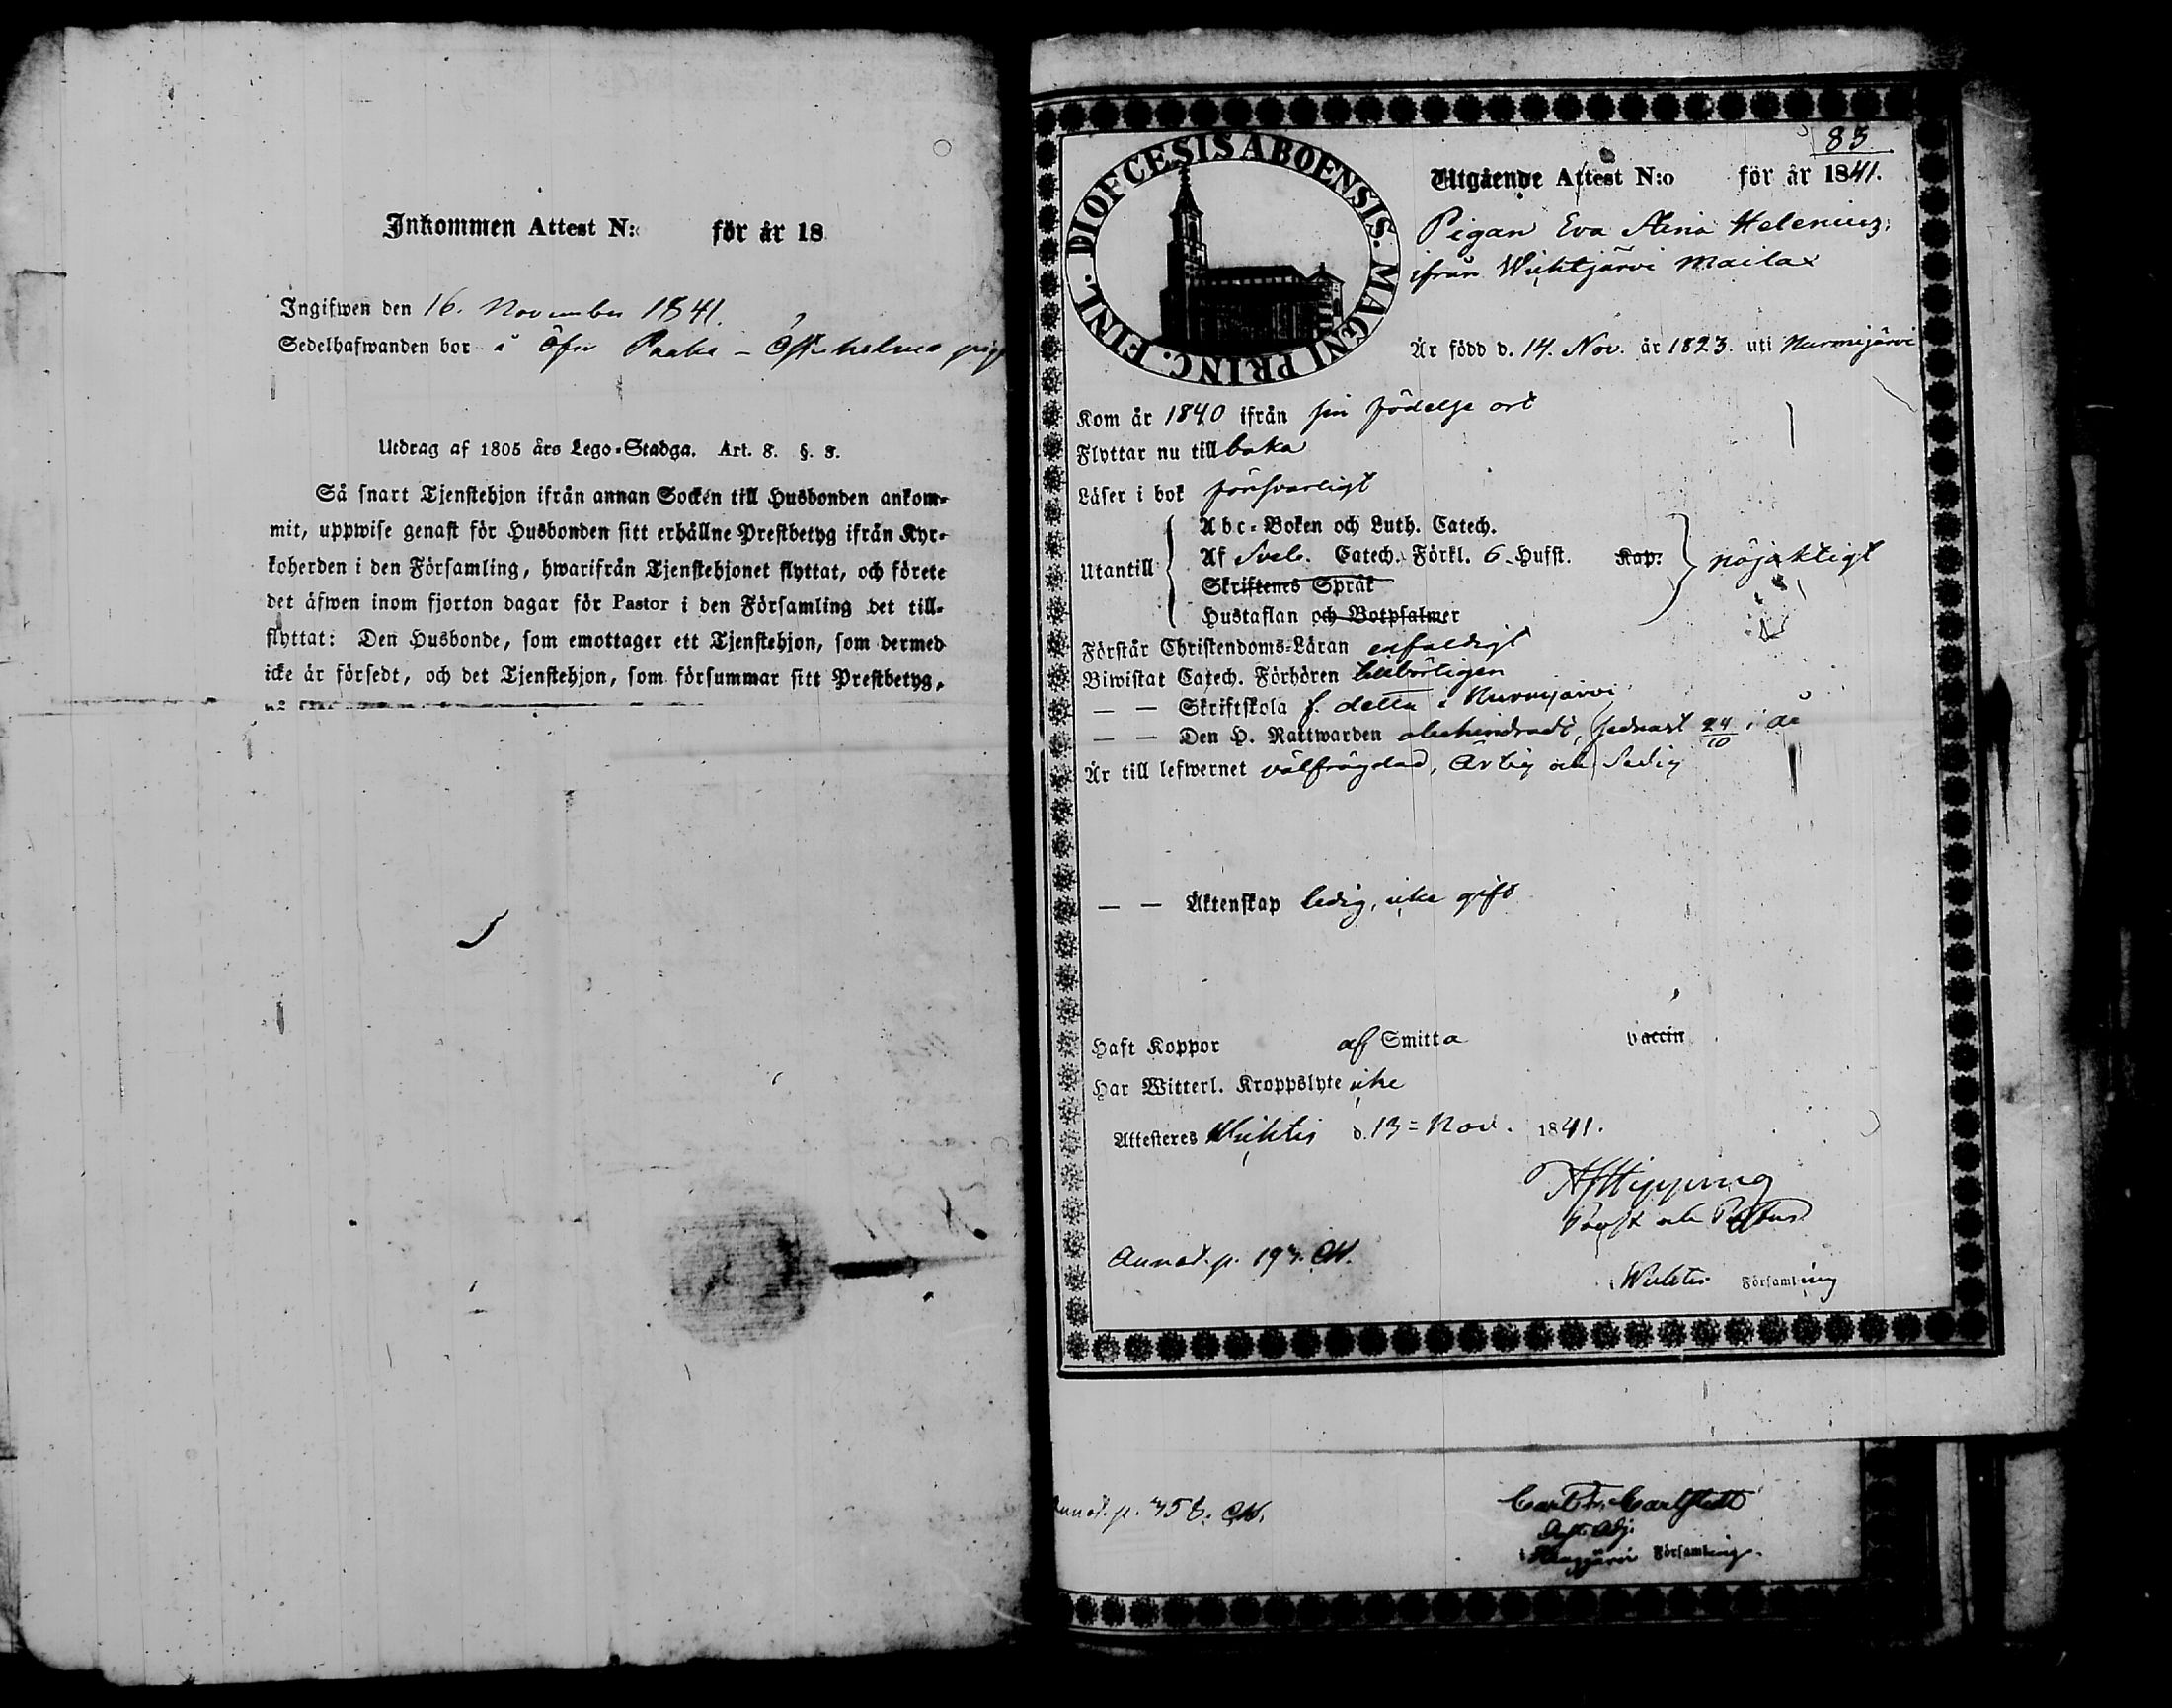 Inkommen Attest N: för år 18
Ingifwen den 16. November 1841.
Sedelhafwanden bor å Öfre
Utdrag af 1805 års Lego-Stadga. Art. 8. §. 8.
Så snart Tjenstehjon ifrån annan Socken till Husbonden ankom-
mit, uppwise genast för Husbonden sitt erhållne Prestbetyg ifrån Kyr-
koherden i den Församling, hwarifrån Tjenstehjonet flyttat, och förete
det äfwen inom fjorton dagar för Pastor i den Församling det till-
flyttat: Den Husbonde, som emottager ett Tjenstehjon, som dermed
icke är försedt, och det Tjenstehjon, som försummar sitt Prestbetyg,
DIOECESIS ABOENSIS. MAGNI PRINC. FINL.
83
Utgående Attest N:o för år 1841.
Pigan Eva Stina Helenius
ifrån Wichtjärvi Mailax
Är född d. 14. Nov. år 1823. uti Nurmijärvi
Kom år 1840 ifrån sin födelse ort
Flyttar nu tillbaka
Läser i bok försvarligt
Utantill
Abc-Boken och Luth. Catech.
Af Sveb. Catech. Förkl. 6 Hufst. Kap.
Skriftenes Språk
Hustaflan och Botpsalmer
nöjaktigt
Förstår Christendoms-Läran enfaldigt
Biwistat Catech. Förhören behörigen
— — Skriftskola f. detta i Nurmijärvi
— — Den H. Nattwarden obehindradt, sednast 24/10 i år
Är till lefwernet välfrägdad, ärlig och sedig
— — Äktenskap ledig, icke gift
Haft Koppor af Smitta vaccin
Har Witterl. Kroppslyte icke
Attesteres Wichtis d. 13 Nov. 1841.
AJHipping
Prost och Pastor
i Wichtis Församling
Annot. p. 193. CW.
Annot. p. 358. CW.
Carl Fr. Carlstedt
Past. Adj.
Församling